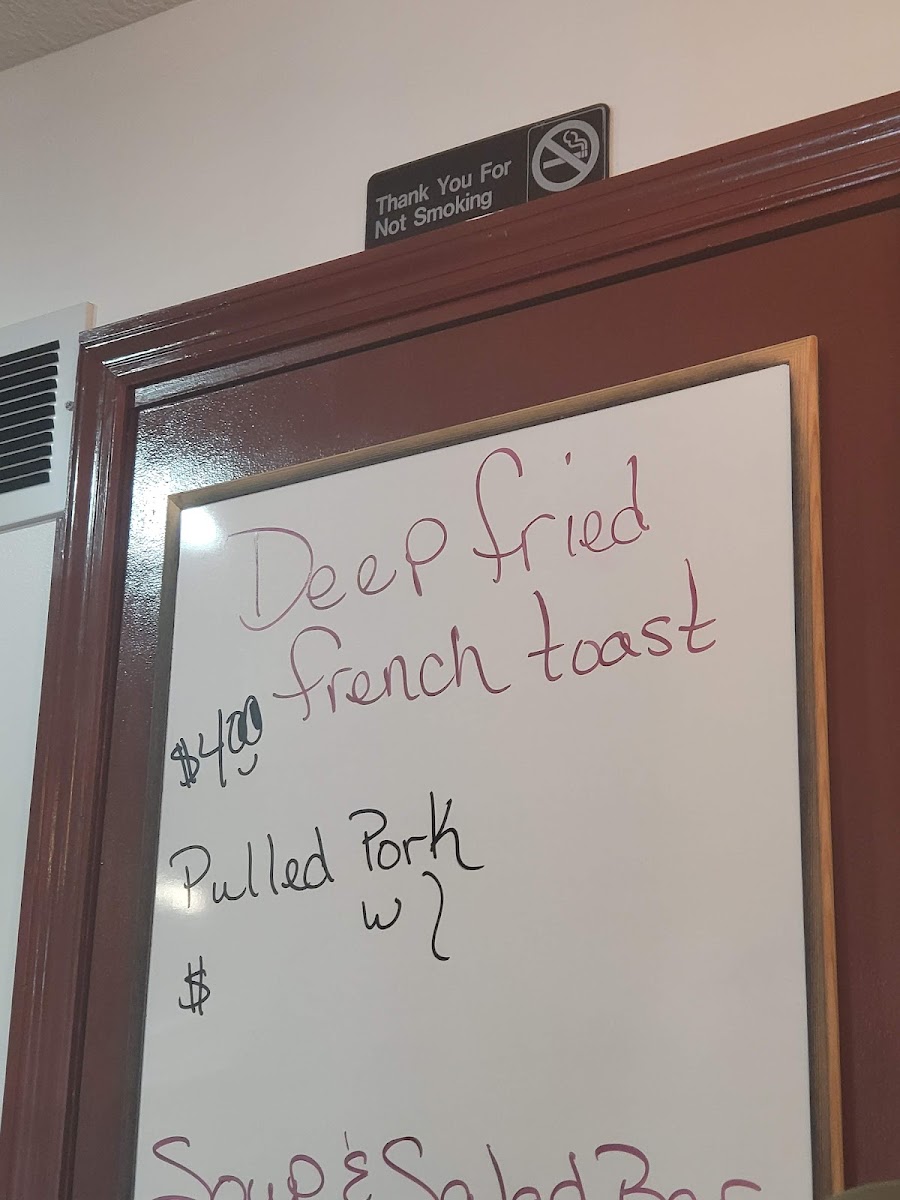 Thank You For
Not Smoking
Deep fried
french toast
$4.00
Pulled Pork
w/
$
Soup & Salad Bar